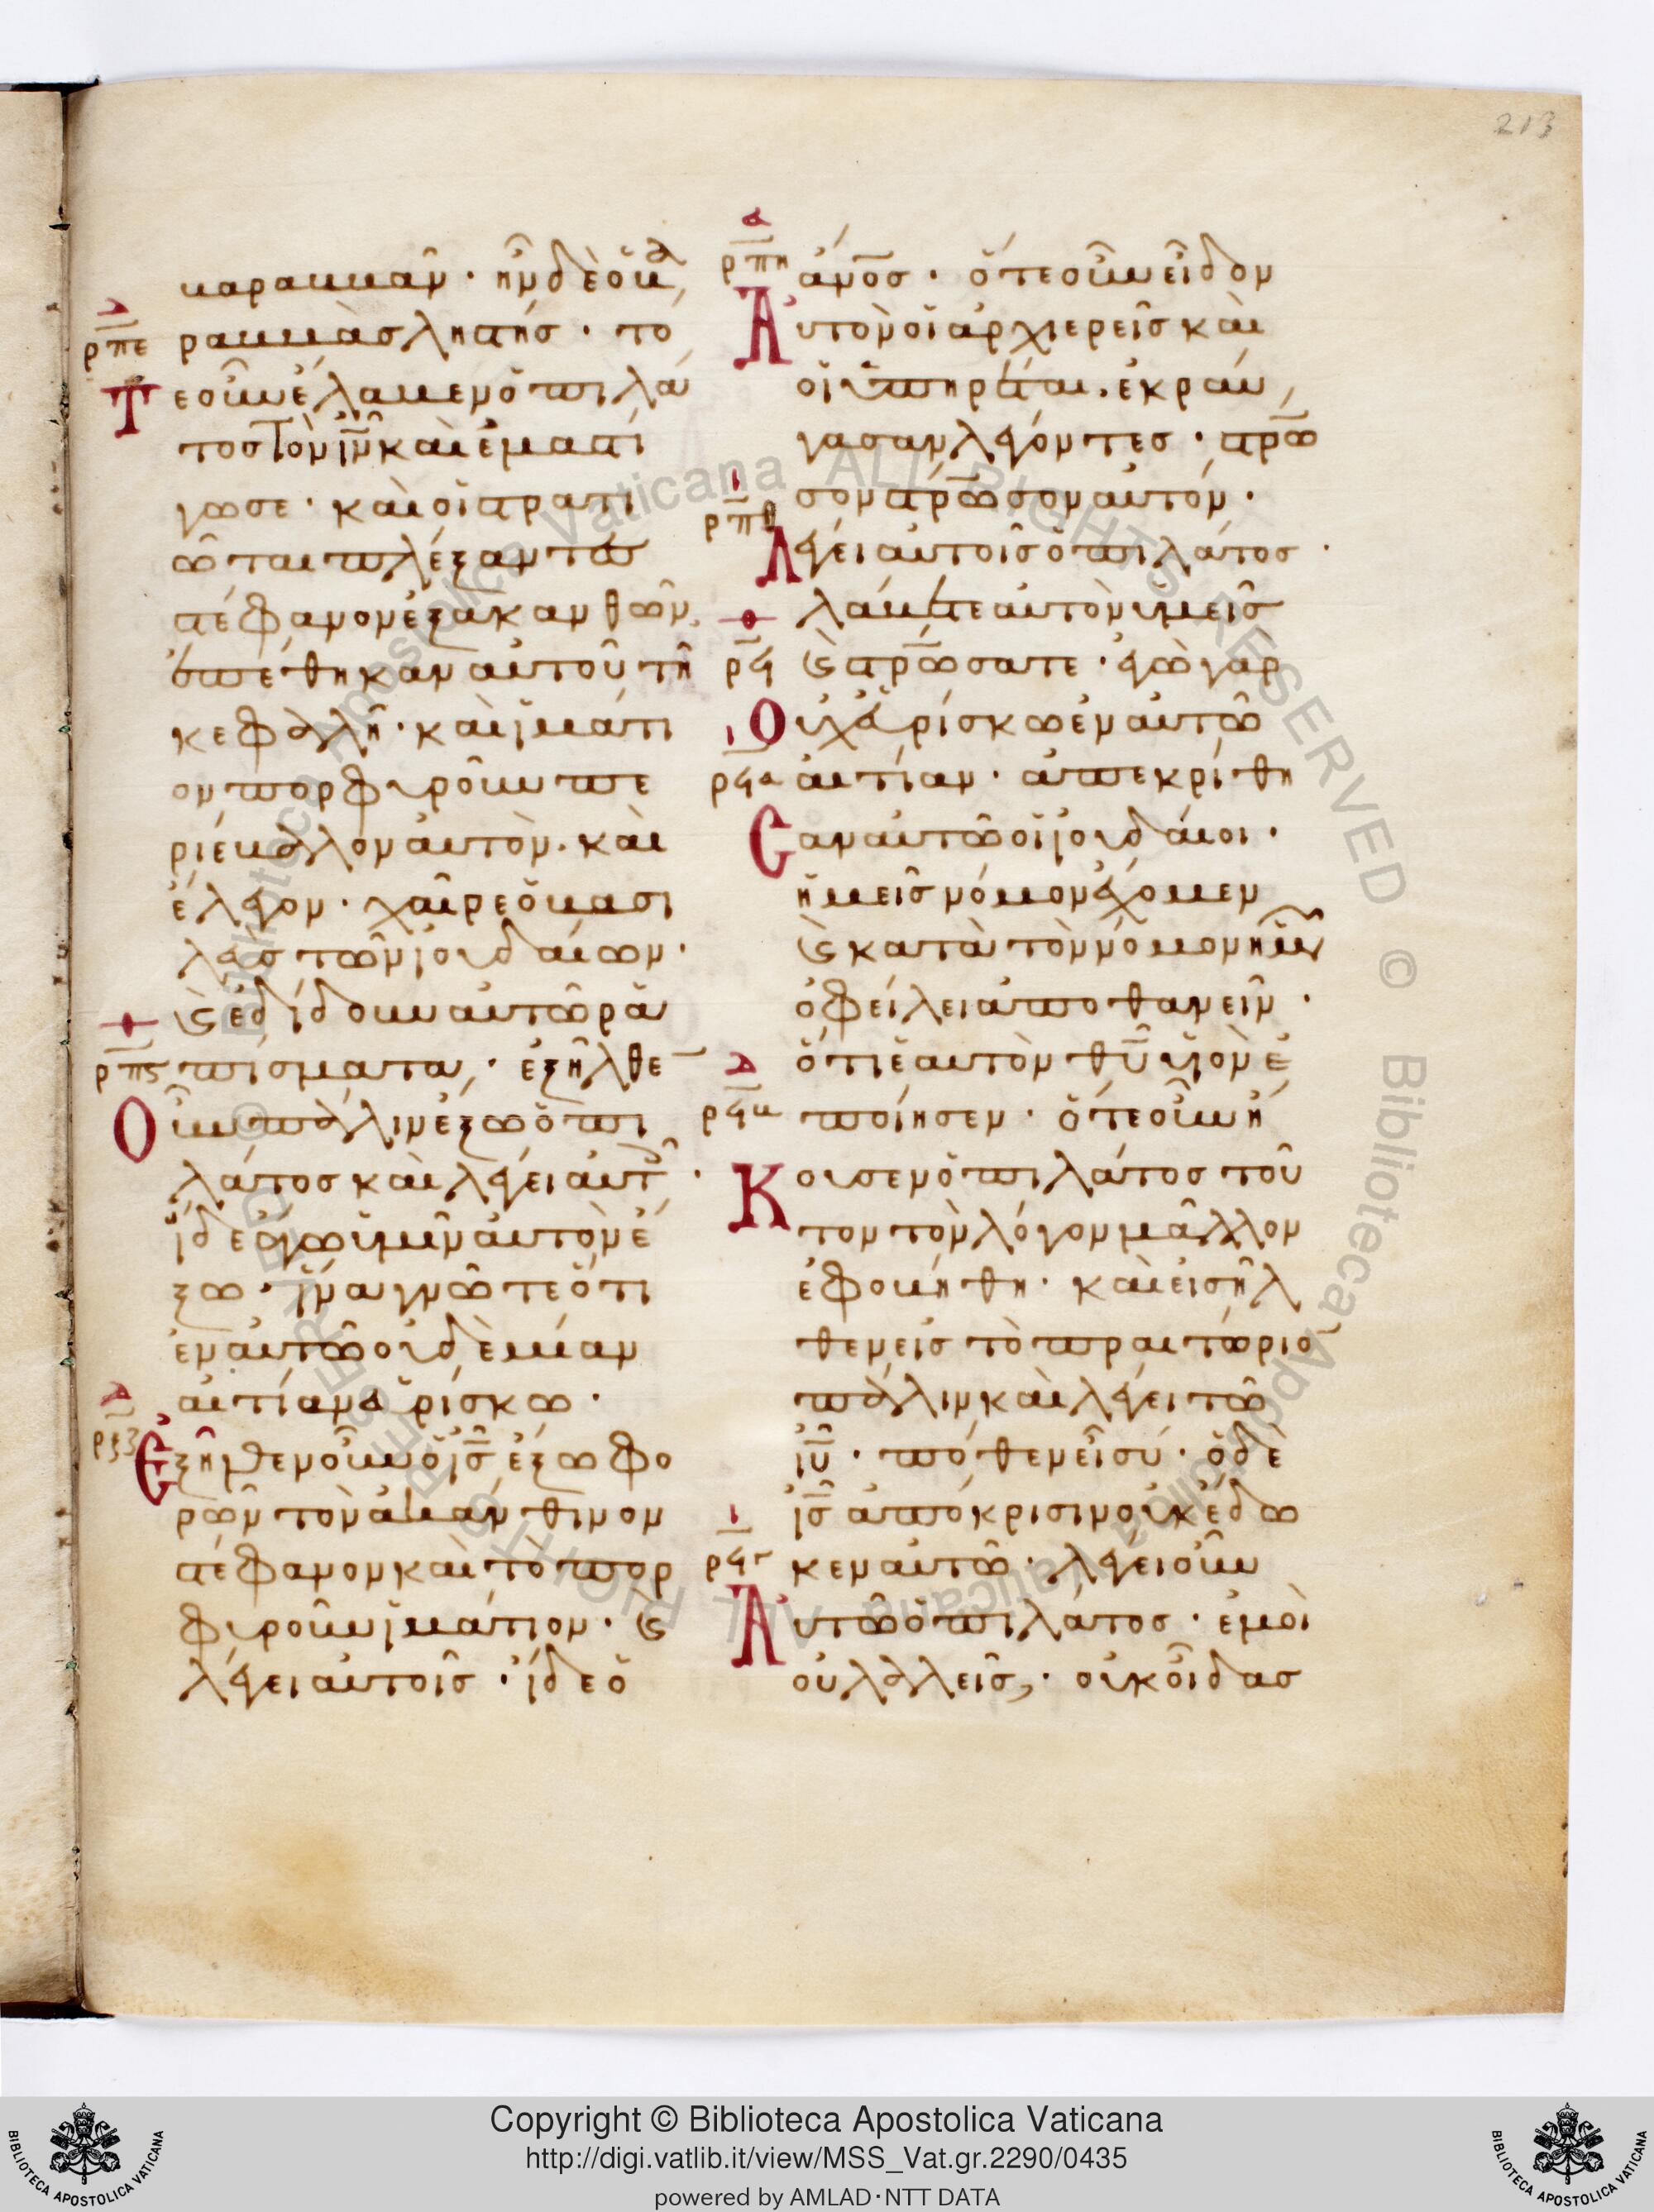 213
βαραββάν· ἦν δὲ ὁ βα
ρπε
ραββὰς ληστής· τό
Τε οὖν ἔλαβεν ὁ πιλά
τος τὸν ἰν καὶ ἐμαστί
γωσε· καὶ οἱ στρατι
ῶται πλέξαντες
στέφανον ἐξ ἀκανθῶν,
ἐπέθηκαν αὐτοῦ τῆ
κεφαλῆ· καὶ ἱμάτι
ον πορφυροῦν πε
ριέβαλλον αὐτὸν· καὶ
ἔλεγον· χαῖρε ὁ βασι
λεὺς τῶν ἰουδαίων·
ϗ ἐδίδουν αὐτῶ ρα
ρπϛ
πίσματα· ἐξῆλθε
Οὖν πάλιν ἔξω ὁ πι
λάτος καὶ λέγει αὐτ
ἴδε ἄγω ὑμῖν αὐτὸν ἔ
ξω· ἵνα γνῶτε ὅτι
ἐν αὐτῶ οὐδὲμίαν
αἰτίαν εὑρίσκω·
ρπζ
Ἐξῆλθεν οὖν ὁ ἰς ἔξω φο
ρῶν τὸν ἀκάνθινον
στέφανον καὶ τὸ πορ
φυροῦν ἱμάτιον· ϗ
λέγει αὐτοῖς· ἴδε ὁ
ρπη
ἄνος· ὅτε οὖν εἶδον
Αὐτὸν οἱ ἀρχιερεῖς καὶ
οἱ ὑπηρέται· ἐκραύ
γασαν λέγοντες· στρω
σον στρωσον αὐτόν·
ρπθ
Λέγει αὐτοῖς ὁ πιλάτος·
λάβετε αὐτὸν ὑμεῖς
ρϟ
ϗ στρωσατε· ἐγὼ γὰρ
Οὐχ εὑρίσκω ἐν αὐτῶ
ρϟα
αἰτίαν· ἀπεκρίθη
Σαν αὐτῶ οἱ ἰουδαῖοι·
ἡμεῖς νόμον ἔχομεν
ϗ κατὰ τὸν νόμον ἡμῶν
ὀφείλει ἀποθανεῖν·
ὅτι ἑαυτὸν θυ υἱὸν ἐ
ρϟβ
ποίησεν· ὅτε οὖν ἤ
Κουσεν ὁ πιλάτος τοῦ
τον τὸν λόγον μᾶλλον
ἐφοβήθη· καὶ εἰσῆλ
θεν εἰς τὸ πραιτώριο
πάλιν καὶ λέγει τῶ
ἰυ· πόθεν εἶ σύ· ὁ δὲ
ἰς ἀπόκρισιν οὐκ ἔδω
ρϟγ
κεν αὐτῶ· λέγει οὖν
Αὐτῶ ὁ πιλάτος· ἐμοὶ
οὐ λαλεῖς,· οὐκ οἶδας
Copyright © Biblioteca Apostolica Vaticana
http://digi.vatlib.it/view/MSS_Vat.gr.2290/0435
powered by AMLAD·NTT DATA